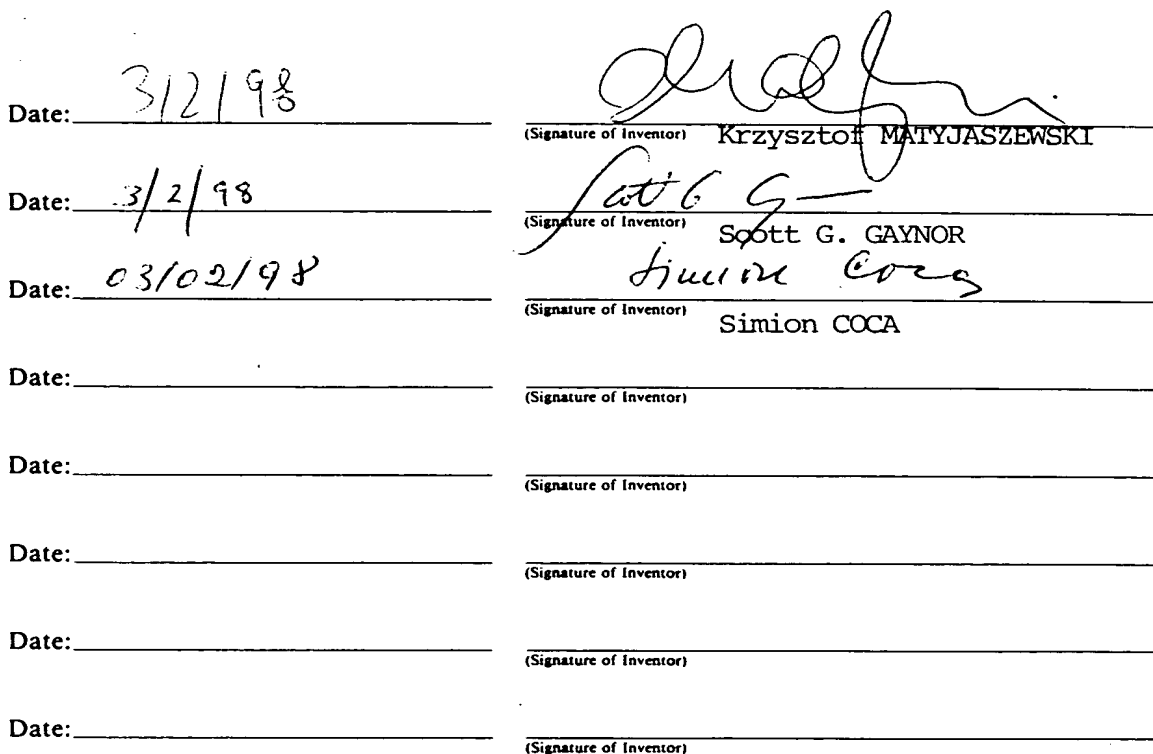 Date: 3/2/98
(Signature of Inventor) Krzysztof MATYJASZEWSKI
Date: 3/2/98 Scott G G
(Signature of Inventor)
Scott G. GAYNOR
Date: 03/02/98 Simion Coca
(Signature of Inventor)
Simion COCA
Date:
(Signature of Inventor)
Date:
(Signature of Inventor)
Date:
(Signature of Inventor)
Date:
(Signature of Inventor)
Date:
(Signature of Inventor)